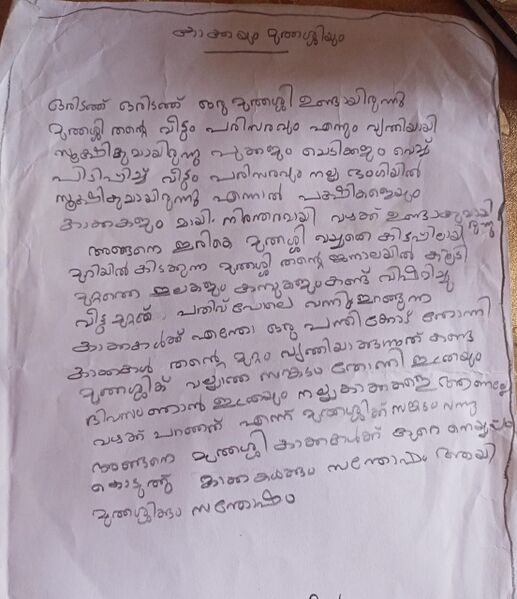 കാക്കയും മുത്തശ്ശിയും
ഒരിടത്ത് ഒരിടത്ത് ഒരു മുത്തശ്ശി ഉണ്ടായിരുന്നു
മുത്തശ്ശി തന്റെ വീട്ടും പരിസരവും എന്നും വൃത്തിയായി
സൂക്ഷിക്കുമായിരുന്നു പൂക്കളും ചെടികളും വെച്ച്
പിടിപ്പിച്ച് വീട്ടും പരിസരവും നല്ല ഭംഗിയിൽ
സൂക്ഷിക്കുമായിരുന്നു എന്നാൽ പക്ഷികളെയും
കാക്കകളും മായി നിരന്തരമായി വഴക്ക് ഉണ്ടാക്കുമായി
രുന്നു
അങ്ങനെ ഇരിക്കെ മുത്തശ്ശി വയ്യാതെ കിടപ്പിലായി
മുറിയിൽ കിടക്കുന്ന മുത്തശ്ശി തന്റെ ജനാലയിൽ കൂടി
മുറ്റത്തെ ഇലകളും കമ്പുകളും കണ്ട് വിഷമിച്ചു
വീട്ടു മുറ്റത്ത് പതിവ് പോലെ വന്നു ഇറങ്ങുന്ന
കാക്കകൾക്ക് എന്തോ ഒരു പന്തികേട് തോന്നി
കാക്കകൾ തന്റെ മുറ്റം വൃത്തിയാക്കുന്നത് കണ്ട
മുത്തശ്ശിക്ക് വല്ലാത്ത സങ്കടം തോന്നി ഇത്രയും
ദിവസം ഞാൻ ഇത്രയും നല്ല കാക്കകളെ ആണല്ലോ
വഴക്ക് പറഞ്ഞത് എന്ന് മുത്തശ്ശിക്ക് സങ്കടം വന്നു
അങ്ങനെ മുത്തശ്ശി കാക്കകൾക്ക് കുറെ നെയ്യപ്പം
കൊടുത്തു കാക്കകൾക്കും സന്തോഷം ആയി
മുത്തശ്ശിക്കും സന്തോഷം